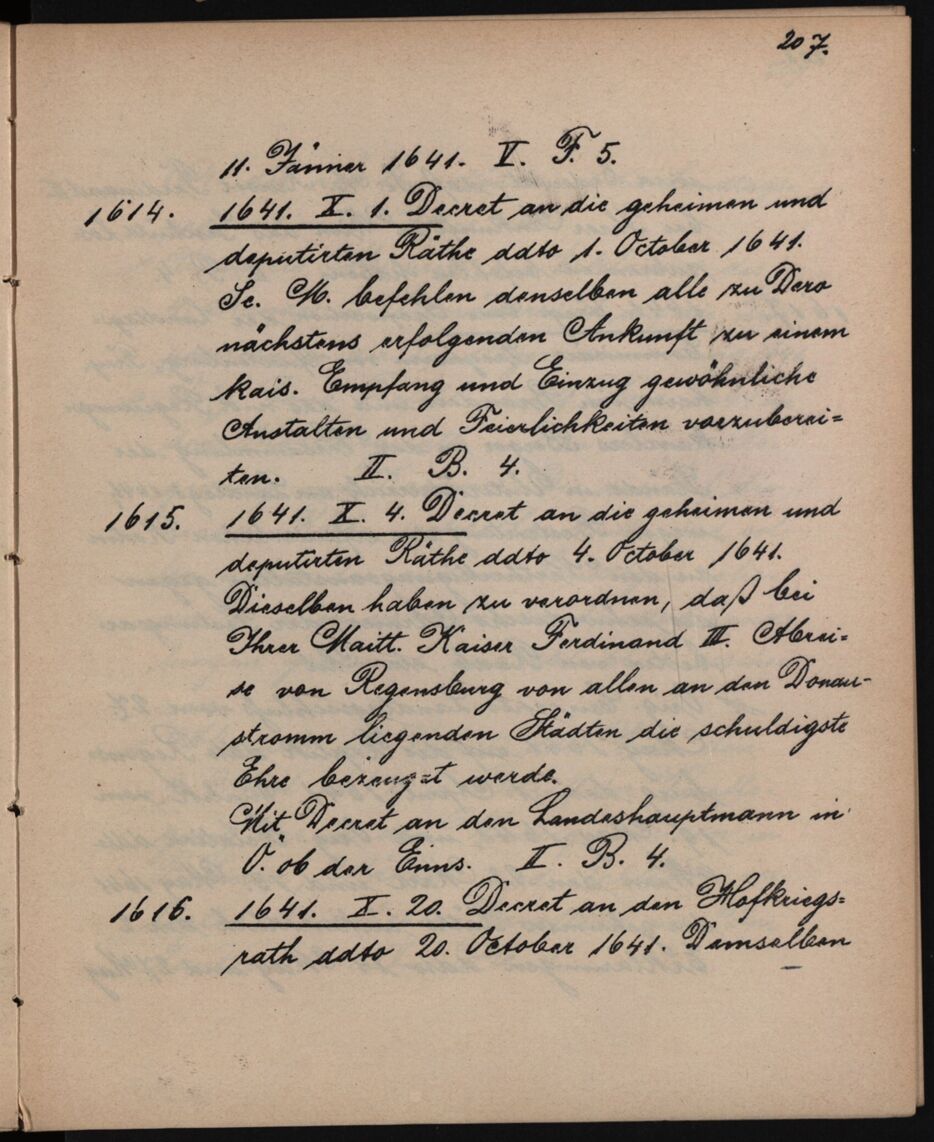 207.
11. Jänner 1641. V. F. 5.
1614. 1641. X. 1. Decret an die geheimen und
deputirten Räthe ddto 1. October 1641.
Se. M. befehlen denselben alle zu Dero
nächstens erfolgenden Ankunft zu einem
kais. Empfang und Einzug gewöhnliche
Anstalten und Feierlichkeiten vorzuberei=
ten. II. B. 4.
1615. 1641. X. 4. Decret an die geheimen und
deputirten Räthe ddto 4. October 1641.
Dieselben haben zu verordnen, daß bei
Ihrer Maitt. Kaiser Ferdinand III. Abrei=
se von Regensburg von allen an den Donau=
stromm liegenden Städten die schuldigste
Ehre bezeug=t werde.
Mit Decret an den Landeshauptmann in
Ö. ob der Enns. II. B. 4.
1616. 1641. X. 20. Decret an den Hofkriegs=
rath ddto 20. October 1641. Demselben